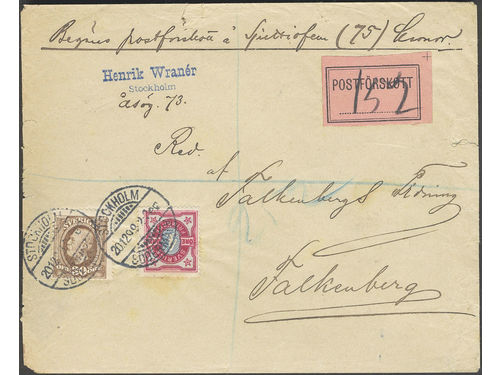 Begäres postförskott å Sjuttiofem (75) Kronor.
Henrik Wranér
Stockholm
Åsög. 73.
POSTFÖRSKOTT
152
Red.
af
Falkenbergs Tidning
Falkenberg
STOCKHOLM
STOCKHOLM